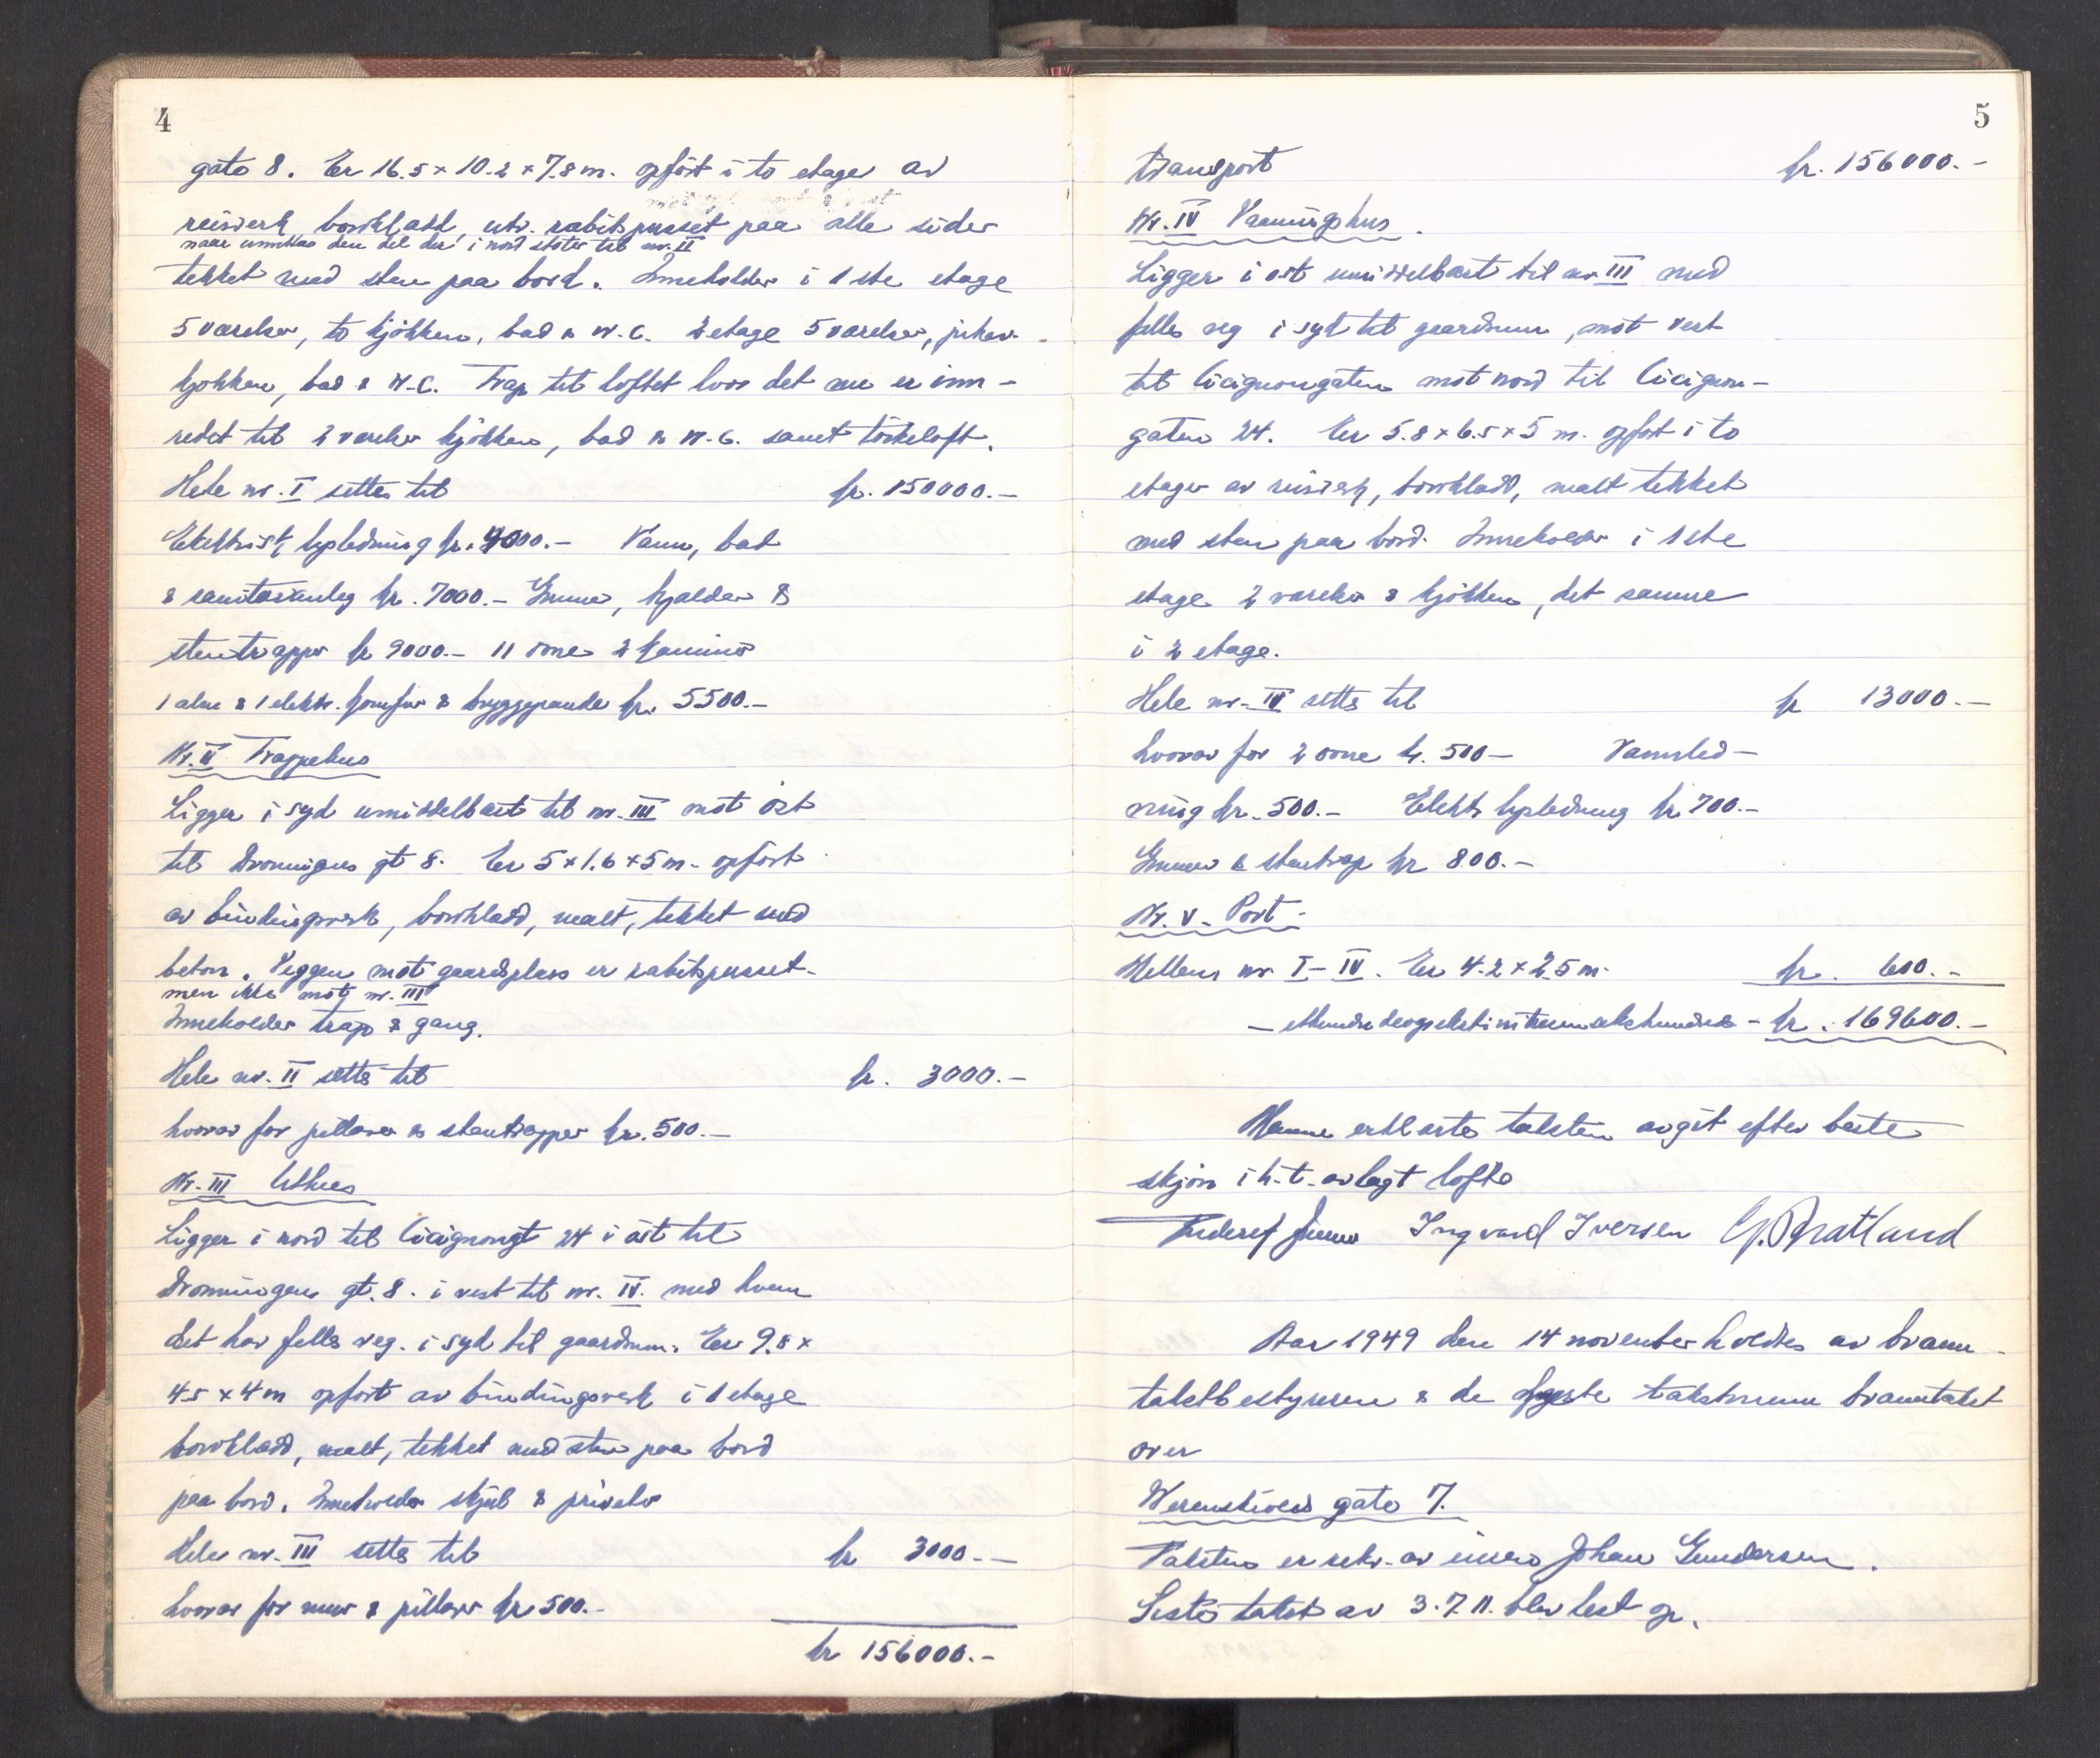 4
gate 8. Er 16.5 x 10.2 x 7.8 m. opført i to etager av
reisverk, bordkladd, utv. rabitspusset paa alle sider
naar unntas den del der i nord støter til nr. II
tekket med sten paa bord. Inneholder i 1ste etage
5 værelser, to kjøkken, bad & W.C. 2 etage 5 værelser,
kjøkken, bad & W.C. Trap til loftet hvor det nu er inn-
redet til 2 værelser kjøkken, bad & W.C. samt tørkeloft.
Hele nr. I settes til kr. 150000.-
Elektrisk opledning kr. 4000.- Vann, bad
& sanitæranleg kr. 7000.- Grunner, kjelder &
stentrapper kr 9000.- 11 ovne 2 kaminer
1 alm & 1 elektr. komfur & bryggepande kr. 5500.-
Nr. II Trappehus
Ligger i syd umiddelbart til nr. III mot øst
til Dronningens gt 8. Er 5 x 1.6 x 5 m. opført
av bindingsverk, bordkladd, malt, tekket med
beton. Veggen mot gaardsplass er rabitspusset-
men ikke mot nr. III
Inneholder trap & gang.
Hele nr. II settes til kr. 3000.-
hvorav for pillarer & stentrapper kr. 500.-
Nr. III Uthus
Ligger i nord til Cicignongt 24 i øst til
Dronningens gt. 8. i vest til nr. IV. med hvem
det har felles veg. i syd til gaardsrum. Er 9.8 x
4.5 x 4 m opført av bindingsverk i 1 etage
bordkladd, malt, tekket med sten paa bord
paa bord. Inneholder skjul & priveter
Hele nr. III settes til kr 3000.-
hvorav for mur & pillarer kr 500.-
kr 156000.-
5
Transport kr. 156000.-
Nr. IV Vaaningshus.
Ligger i øst umiddelbart til nr III med
felles veg i syd til gaardsrum, mot vest
til Cicignongaten mot nord til Cicignon-
gaten 24. Er 5.8 x 6.5 x 5 m. opført i to
etager av reisverk, bordkladd, malt tekket
med sten paa bord. Inneholder i 1ste
etage 2 værelser & kjøkken, det samme
i 2 etage.
Hele nr. IV settes til kr 13000.-
hvorav for 2 ovne kr. 500- Vannled-
ning kr. 500.- Elektr opledning kr. 700.-
Grunner & stentrap kr 800.-
Nr. V. Port.
Mellem nr. I-IV. Er 4.2 x 2.5 m. kr. 600.-
- etthundredeogsekstinitusensekshundrede - kr. 169600.-
Menne erklærte taksten avgit efter beste
skjøn i h.t. avlagt løfte
Ingvard Iversen
Aar 1949 den 14 november holdtes av brann-
takstbestyreren & de faste takstmenn branntakst
over
Werenskiolds gate 7.
Taksten er rekv. av eieren Johan Gundersen.
Siste takst av 3.7.11. blev lest op.